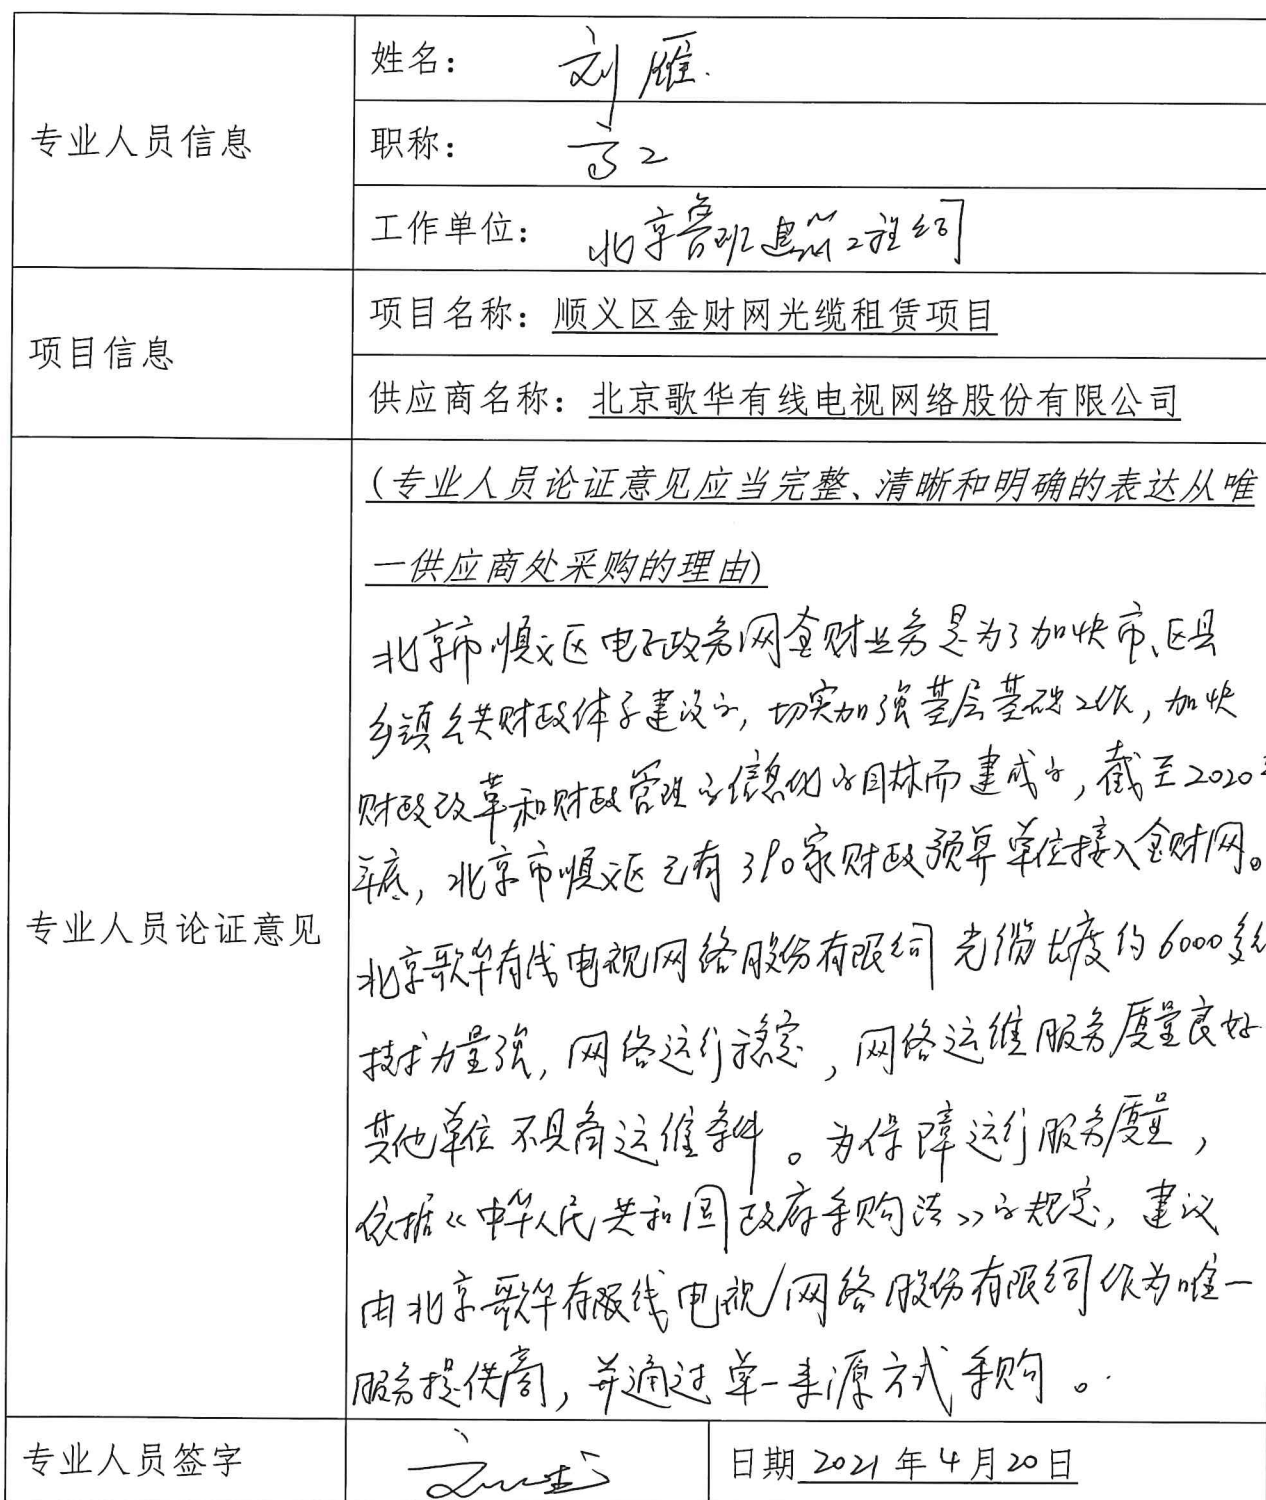 专业人员信息
姓名： 刘雁
职称： 高工
工作单位： 北京鲁班建筑工程公司
项目信息
项目名称：顺义区金财网光缆租赁项目
供应商名称：北京歌华有线电视网络股份有限公司
专业人员论证意见
(专业人员论证意见应当完整、清晰和明确的表达从唯
一供应商处采购的理由)
北京市顺义区电子政务网金财业务是为了加快市、区县
乡镇公共财政体系建设的, 切实加强基层基础工作, 加快
财政改革和财政管理的信息化的目标而建成的, 截至2020
年底, 北京市顺义区已有390家财政预算单位接入金财网。
北京歌华有线电视网络股份有限公司光缆长度约6000多公
技术力量强, 网络运行稳定, 网络运维服务质量良好
其他单位不具备运维条件。为保障运行服务质量,
依据《中华人民共和国政府采购法》的规定, 建议
由北京歌华有限线电视网络股份有限公司作为唯一
服务提供商, 并通过单一来源方式采购。
专业人员签字
日期 2021年4月20日